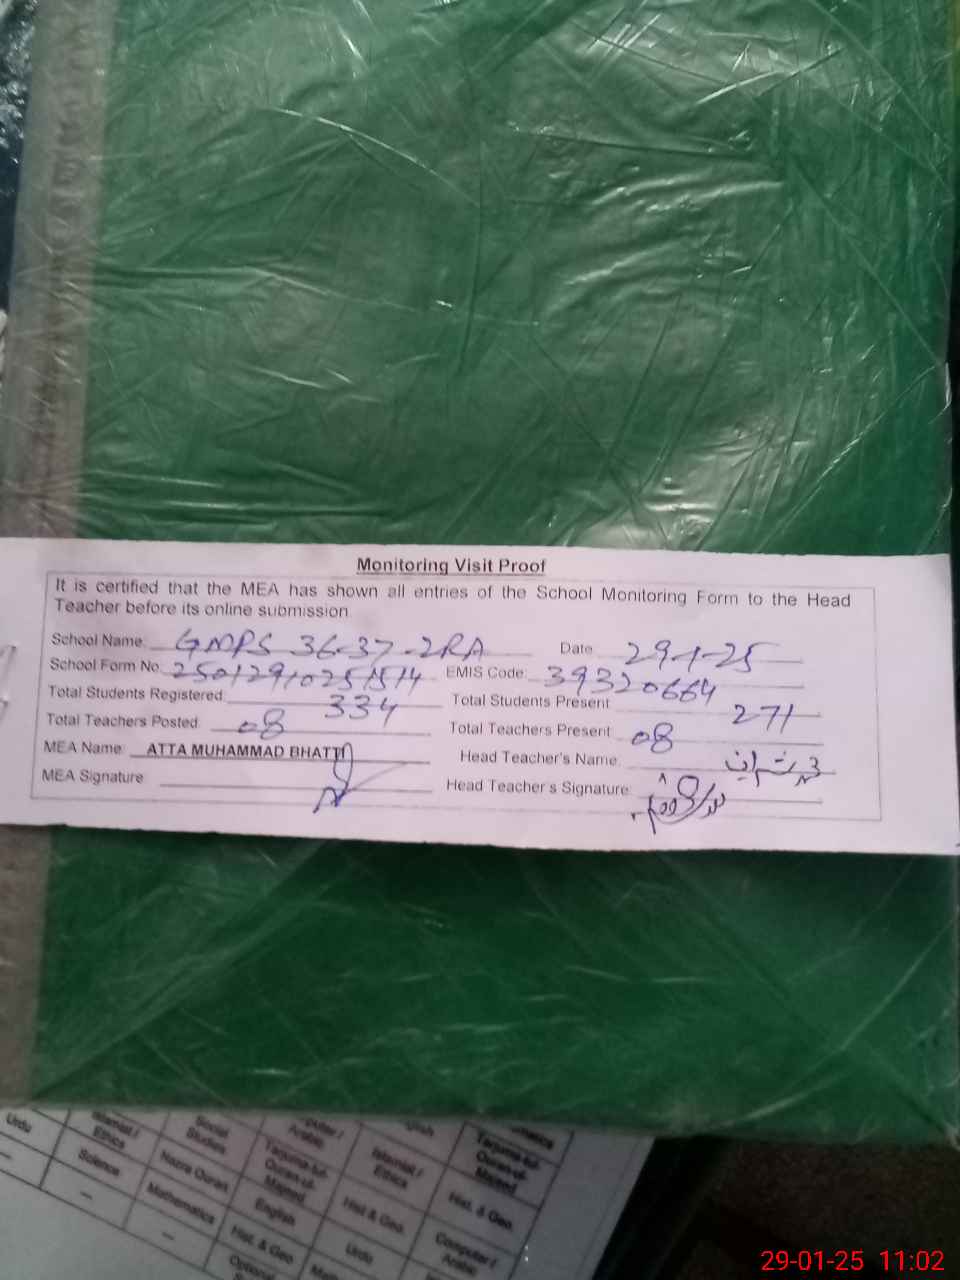 Monitoring Visit Proof
It is certified that the MEA has shown all entries of the School Monitoring Form to the Head
Teacher before its online submission.
School Name: GMPS 36-37-2RA Date 29-1-25
School Form No. EMIS Code: 39320664
Total Students Registered: 334 Total Students Present 271
Total Teachers Posted: 08 Total Teachers Present 08
MEA Name: ATTA MUHAMMAD BHATTI Head Teacher's Name:
MEA Signature Head Teacher's Signature:
Urdu Islamiat / Ethics Social Studies Arabic
Science Nazra Quran Tarjuma-tul-Quran-ul-Majeed Islamiat / Ethics Tarjuma-tul-Quran-ul-Majeed
— Mathematics English Hist & Geo. Hist. & Geo.
— Hist. & Geo Urdu Computer / Arabic
Optional
29-01-25 11:02